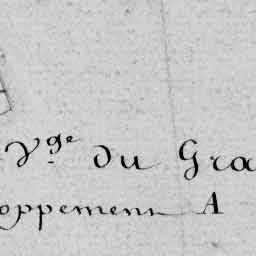 Vge du Gra
oppement A